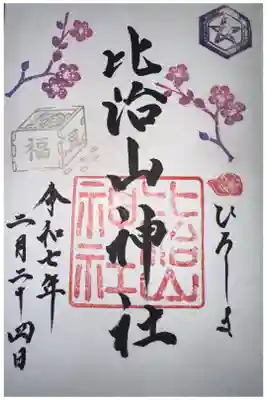 比治山神社
ひろしま
令和七年
二月二十四日
福
比治山
神社